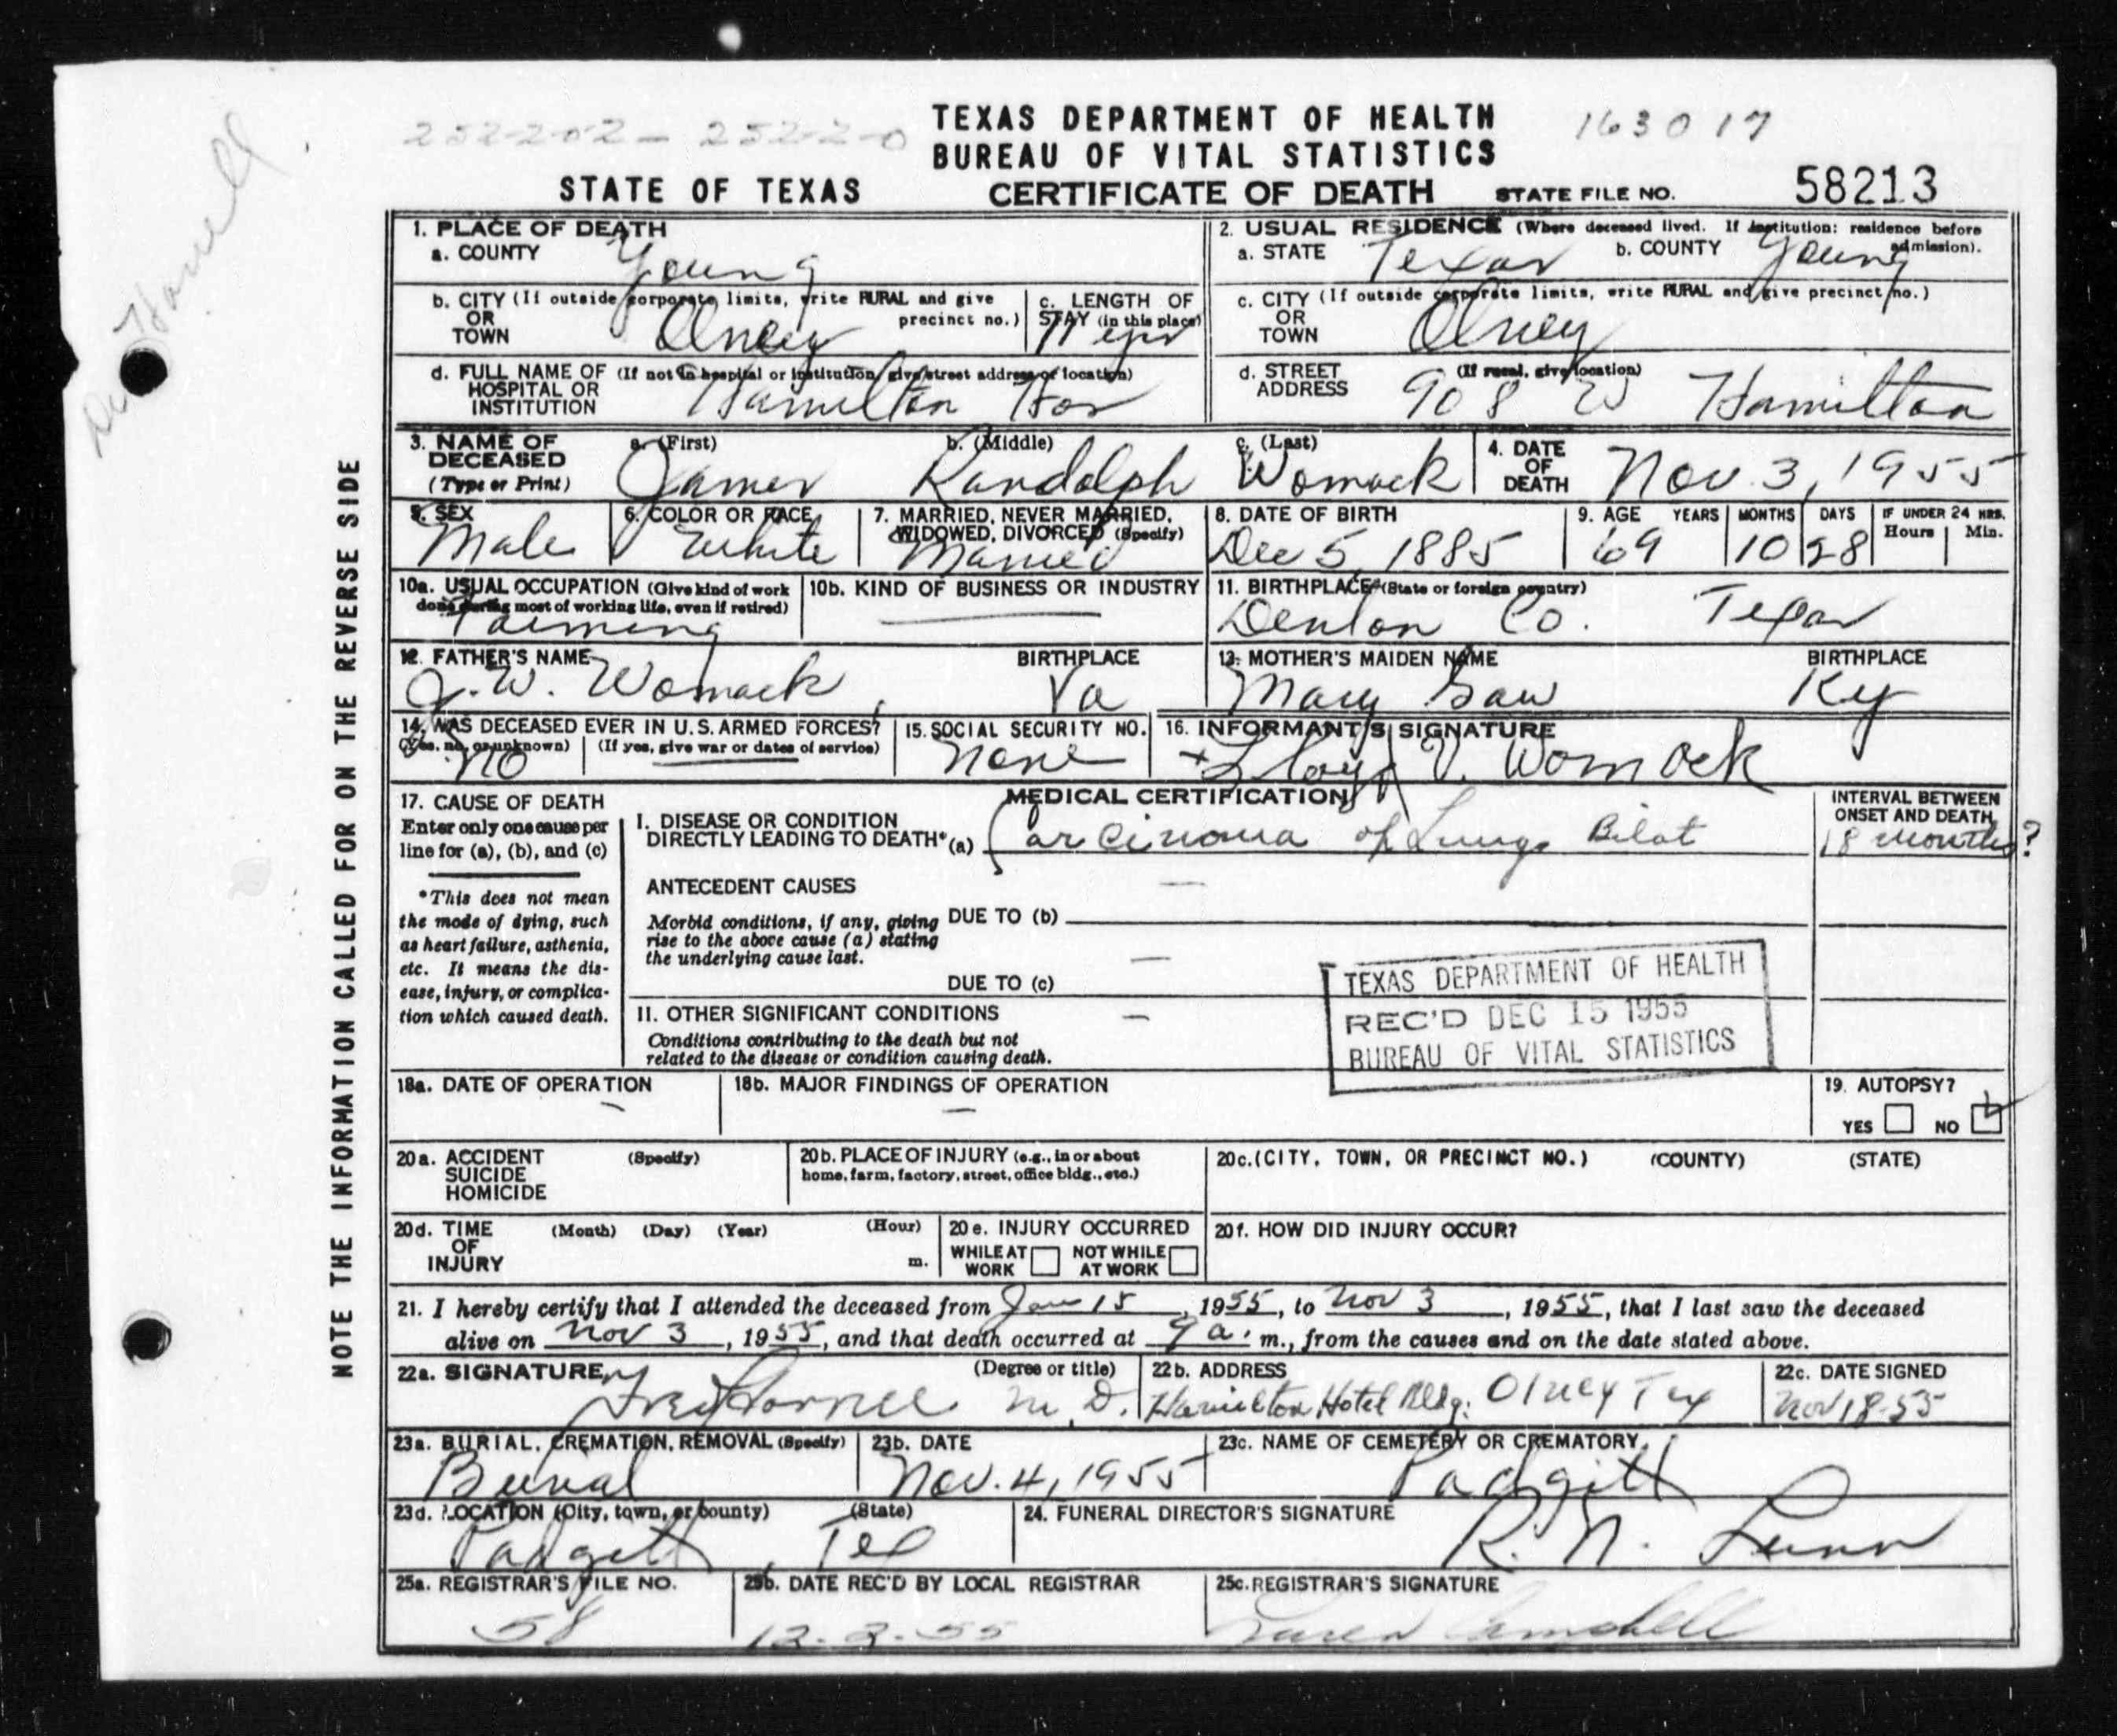 TEXAS DEPARTMENT OF HEALTH
BUREAU OF VITAL STATISTICS
252202 - 2522-0
163017
STATE OF TEXAS CERTIFICATE OF DEATH STATE FILE NO. 58213
NOTE THE INFORMATION CALLED FOR ON THE REVERSE SIDE
1. PLACE OF DEATH
a. COUNTY Young
2. USUAL RESIDENCE (Where deceased lived. If institution: residence before admission).
a. STATE Texas b. COUNTY Young
b. CITY (If outside corporate limits, write RURAL and give precinct no.)
OR
TOWN Olney
c. LENGTH OF
STAY (in this place)
yrs
c. CITY (If outside corporate limits, write RURAL and give precinct no.)
OR
TOWN Olney
d. FULL NAME OF (If not in hospital or institution, give street address or location)
HOSPITAL OR
INSTITUTION Hamilton Hos
d. STREET (If rural, give location)
ADDRESS 908 W Hamilton
3. NAME OF DECEASED (Type or Print)
a. (First) James b. (Middle) Randolph c. (Last) Womack
4. DATE OF DEATH Nov. 3, 1955
5. SEX Male
6. COLOR OR RACE White
7. MARRIED, NEVER MARRIED, WIDOWED, DIVORCED (Specify) Married
8. DATE OF BIRTH Dec 5, 1885
9. AGE YEARS 69 MONTHS 10 DAYS 28 IF UNDER 24 HRS. Hours Min.
10a. USUAL OCCUPATION (Give kind of work done during most of working life, even if retired) Farming
10b. KIND OF BUSINESS OR INDUSTRY
11. BIRTHPLACE (State or foreign country) Denton Co. Texas
12. FATHER'S NAME J. W. Womack, BIRTHPLACE Va
13. MOTHER'S MAIDEN NAME Mary Gaw BIRTHPLACE Ky
14. WAS DECEASED EVER IN U.S. ARMED FORCES?
(Yes, no, or unknown) No (If yes, give war or dates of service)
15. SOCIAL SECURITY NO. None
16. INFORMANT'S SIGNATURE
x Lloyd V. Womack
17. CAUSE OF DEATH
Enter only one cause per
line for (a), (b), and (c)
*This does not mean
the mode of dying, such
as heart failure, asthenia,
etc. It means the dis-
ease, injury, or complica-
tion which caused death.
MEDICAL CERTIFICATION
I. DISEASE OR CONDITION
DIRECTLY LEADING TO DEATH* (a) Carcinoma of Lungs Bilat
INTERVAL BETWEEN
ONSET AND DEATH
18 months?
ANTECEDENT CAUSES
Morbid conditions, if any, giving
rise to the above cause (a) stating
the underlying cause last.
DUE TO (b)
DUE TO (c)
II. OTHER SIGNIFICANT CONDITIONS
Conditions contributing to the death but not
related to the disease or condition causing death.
TEXAS DEPARTMENT OF HEALTH
REC'D DEC 15 1955
BUREAU OF VITAL STATISTICS
18a. DATE OF OPERATION
18b. MAJOR FINDINGS OF OPERATION
19. AUTOPSY?
YES NO
20a. ACCIDENT (Specify)
SUICIDE
HOMICIDE
20b. PLACE OF INJURY (e.g., in or about
home, farm, factory, street, office bldg., etc.)
20c. (CITY, TOWN, OR PRECINCT NO.) (COUNTY) (STATE)
20d. TIME (Month) (Day) (Year) (Hour)
OF
INJURY m.
20e. INJURY OCCURRED
WHILE AT WORK NOT WHILE AT WORK
20f. HOW DID INJURY OCCUR?
21. I hereby certify that I attended the deceased from Jan 15, 1955, to Nov 3, 1955, that I last saw the deceased
alive on Nov 3, 1955, and that death occurred at 9 a. m., from the causes and on the date stated above.
22a. SIGNATURE (Degree or title)
M.D.
22b. ADDRESS
Hamilton Hotel Bldg. Olney Tex
22c. DATE SIGNED
Nov 18-55
23a. BURIAL, CREMATION, REMOVAL (Specify)
Burial
23b. DATE
Nov. 4, 1955
23c. NAME OF CEMETERY OR CREMATORY
Padgitt
23d. LOCATION (City, town, or county) (State)
Padgitt, Tex
24. FUNERAL DIRECTOR'S SIGNATURE
R. N. Lunn
25a. REGISTRAR'S FILE NO.
58
25b. DATE REC'D BY LOCAL REGISTRAR
12-2-55
25c. REGISTRAR'S SIGNATURE
Campbell